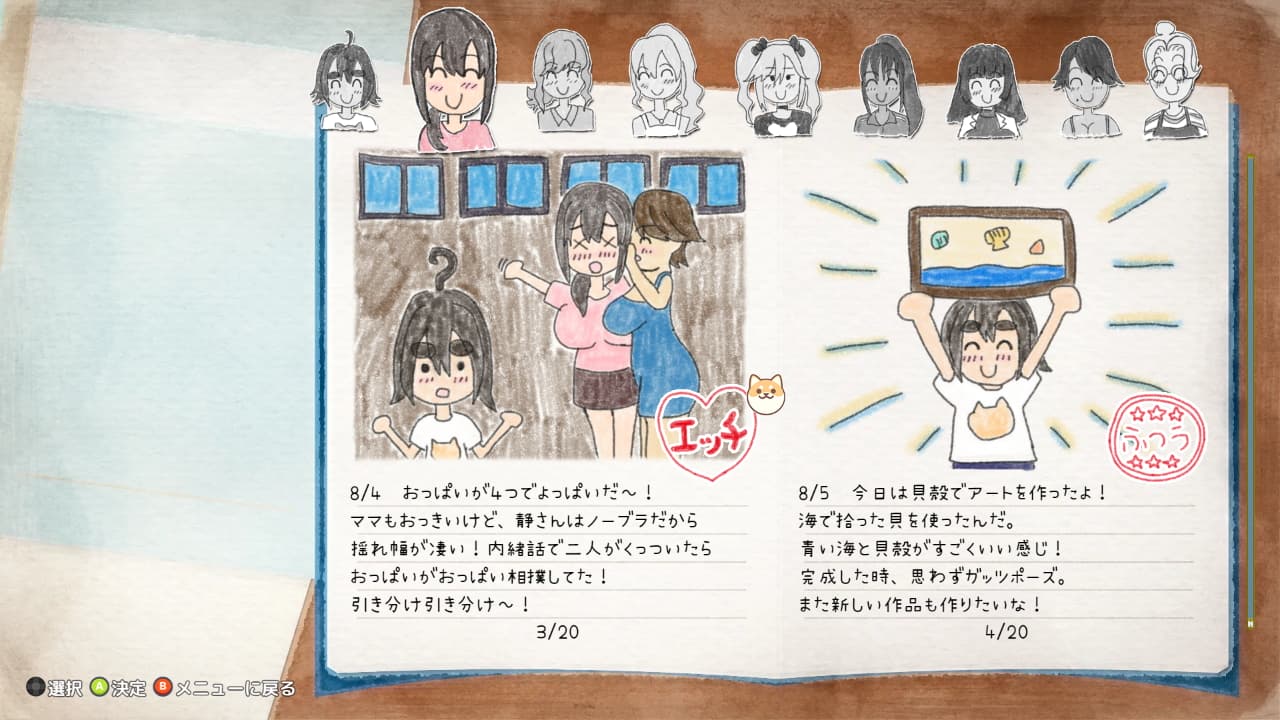 エッチ
8/4 おっぱいが4つでよっぱいだ〜！
ママもおっきいけど、静さんはノーブラだから
揺れ幅が凄い！内緒話で二人がくっついたら
おっぱいがおっぱい相撲してた！
引き分け引き分け〜！
3/20
ふつう
8/5 今日は貝殻でアートを作ったよ！
海で拾った貝を使ったんだ。
青い海と貝殻がすごくいい感じ！
完成した時、思わずガッツポーズ。
また新しい作品も作りたいな！
4/20
選択 A 決定 B メニューに戻る